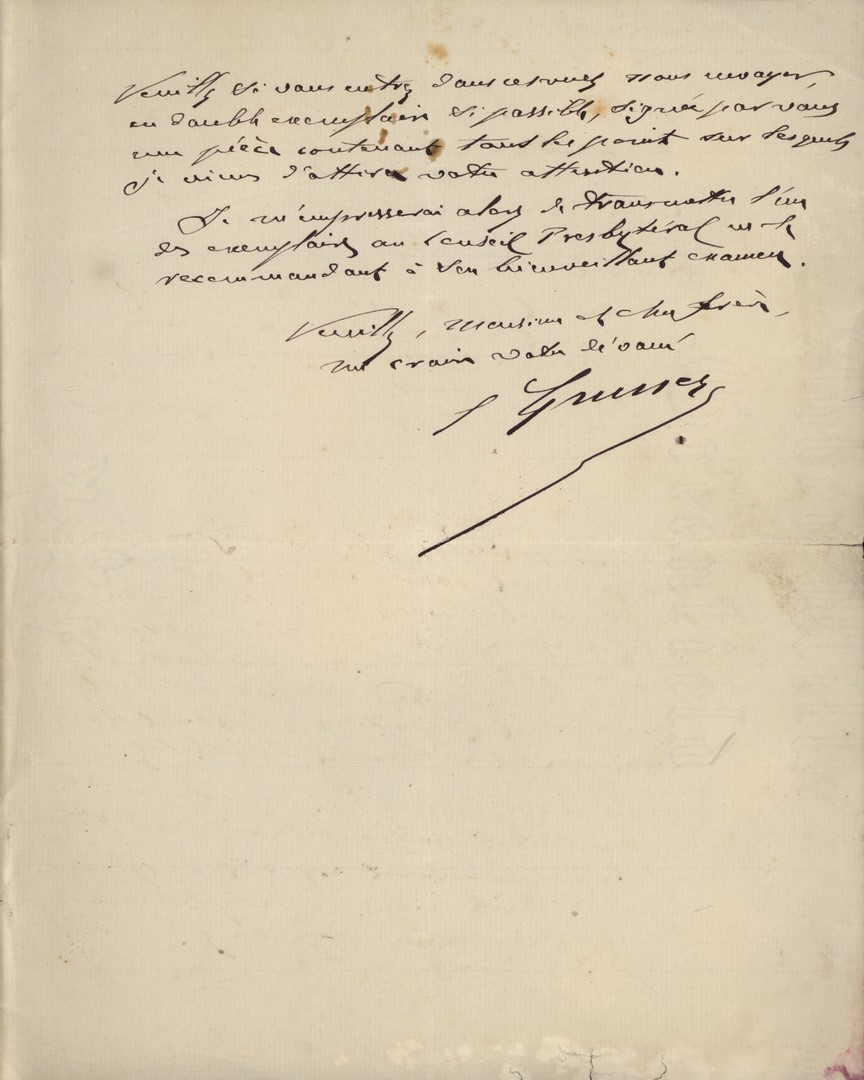 Veuillez si vous entrez dans ces vues nous envoyer,
en double exemplaire si possible, signée par vous
une pièce contenant tous les point sur lesquels
je viens d'attirer votre attention.
Je m'empresserai alors de transmettre l'un
des exemplaires au Conseil Presbytéral en le
recommandant à son bienveillant examen.
Veuillez, Monsieur et cher frère,
me croire votre dévoué